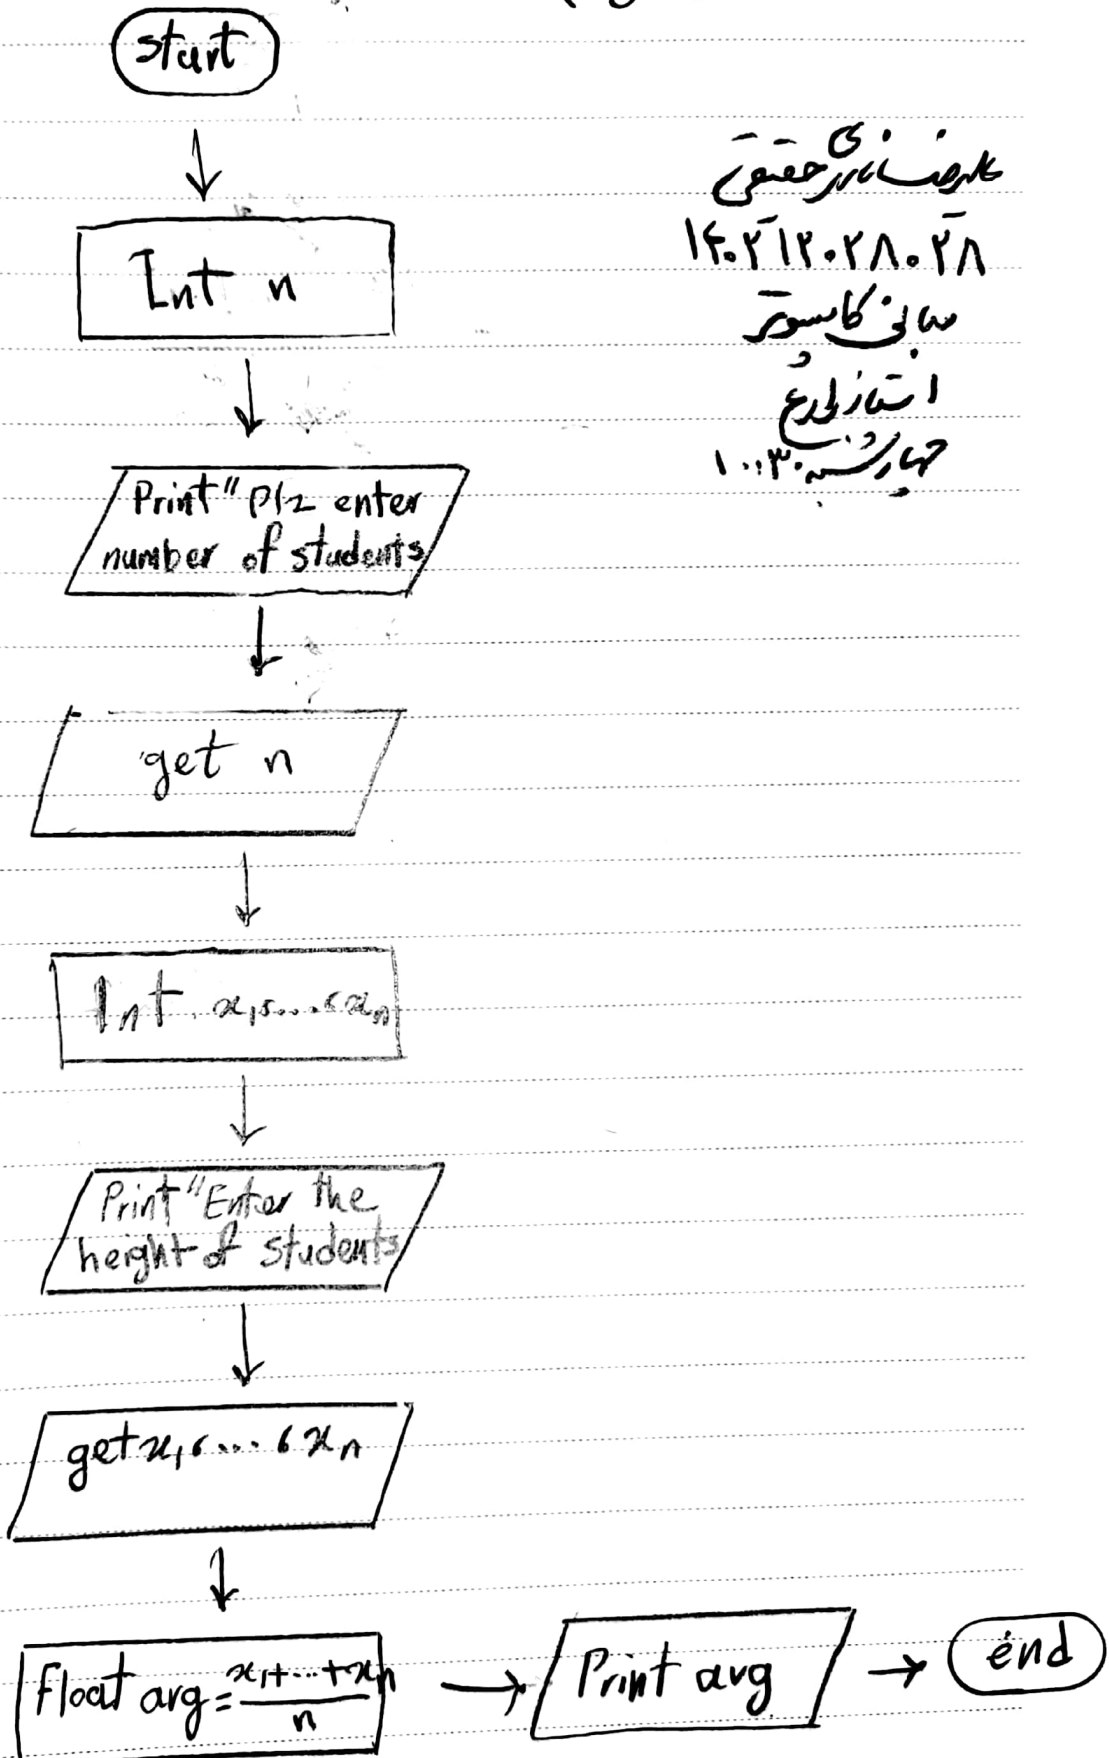 start
Int n
Print" plz enter
number of students
get n
Int x₁،....،xₙ
Print "Enter the
height of students
get x₁،....،xₙ
Float avg = x₁+...+xₙ / n
Print avg
end
علیرضا نادری حقیقی
۱۴۰۲۱۲۰۲۸۰۲۸
مبانی کامپیوتر
استاد
چهارشنبه ۱۰:۳۰